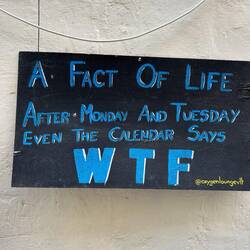 A Fact Of Life
After Monday And Tuesday
Even The Calendar Says
WTF
@oxygenloungevlt